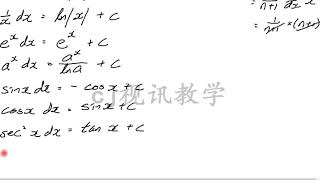 1/x dx = ln|x| + c
e^x dx = e^x + c
a^x dx = a^x/ln a + c
sin x dx = - cos x + c
cos x dx = sin x + c
sec² x dx = tan x + c
cj视讯教学